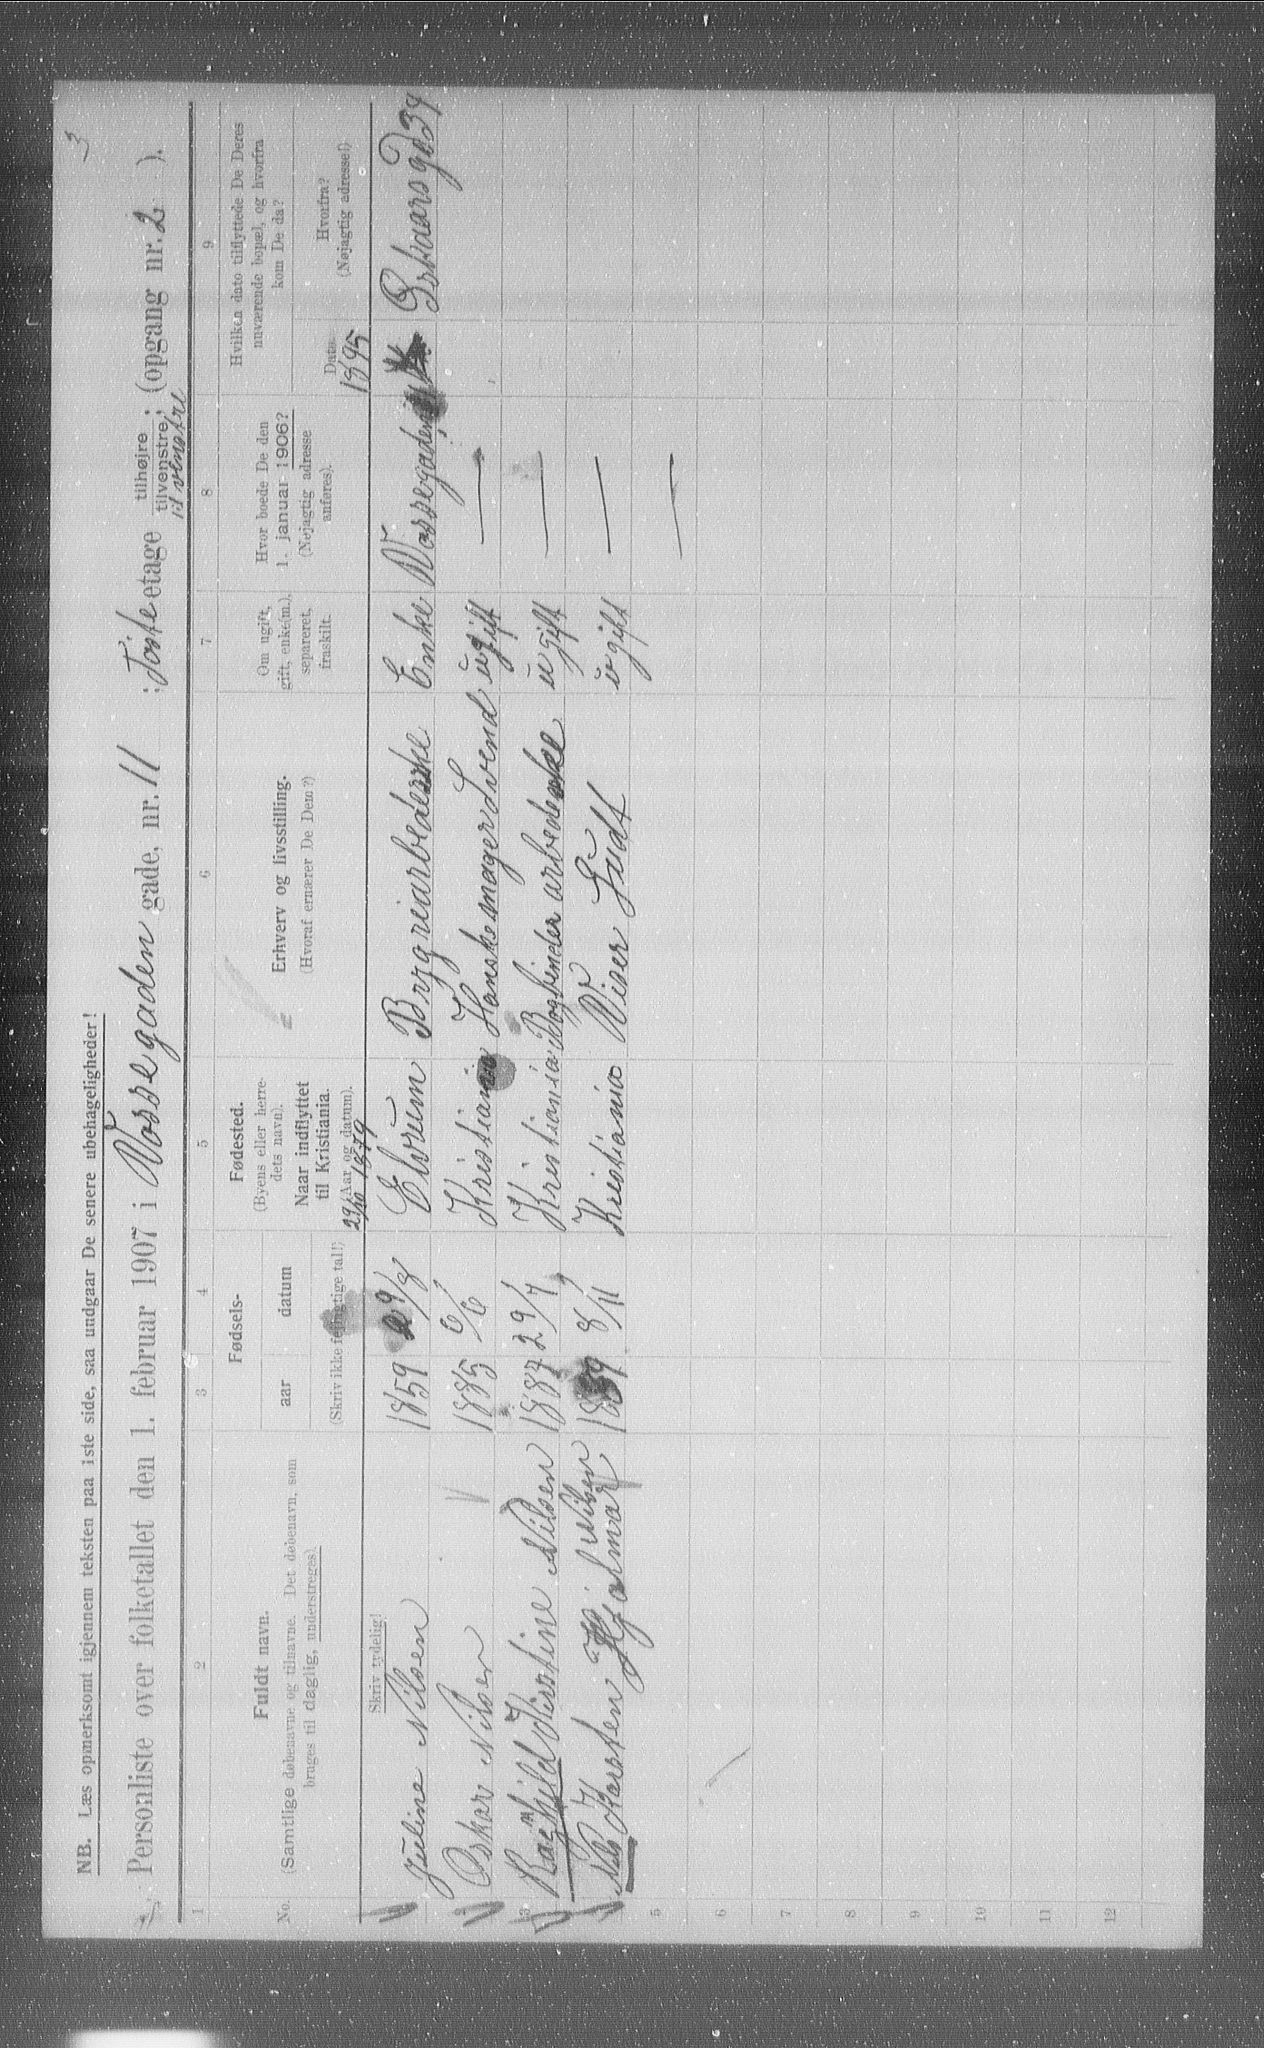 3
NB. Læs opmerksomt igjennem teksten paa 1ste side, saa undgaar De senere ubehageligheder!
Personliste over folketallet den 1. februar 1907 i Vossegaden gade, nr. 11 : 1ste etage tilhøjre tilvenstre; (opgang nr. 2 ).
til venstre
1 2 3 4 5 6 7 8 9
No.
Fuldt navn.
(Samtlige døbenavne og tilnavne. Det døbenavn, som
bruges til daglig, understreges).
Fødsels-
aar datum
(Skriv ikke feilagtige tal!)
Fødested.
(Byens eller herre-
dets navn).
Naar indflyttet
til Kristiania.
(Aar og datum).
Erhverv og livsstilling.
(Hvoraf ernærer De Dem?)
Om ugift,
gift, enke(m.),
separeret,
fraskilt.
Hvor boede De den
1. januar 1906?
(Nøjagtig adresse
anføres).
Hvilken dato tilflyttede De Deres
nuværende bopæl, og hvorfra
kom De da?
Dato.
Hvorfra?
(Nøjagtig adresse!)
Skriv tydelig!
29/10 1879
1895
Juline Nilsen 1859 29/8 Elvrum Brygriarbederske Enke Vossegaden Oskarsgd 39
Oskar Nilsen 1885 6/6 Kristiania Hanskemager Svend ugift —
3 Raghild Kirstine Nilsen 1887 29/7 Kristiania Bogbinder arbederske ugift —
Nils Karsten Hjalmar Nilsen 1889 8/11 Kristiania Viser Gudt ugift —
5 —
6
7
8
9
10
11
12